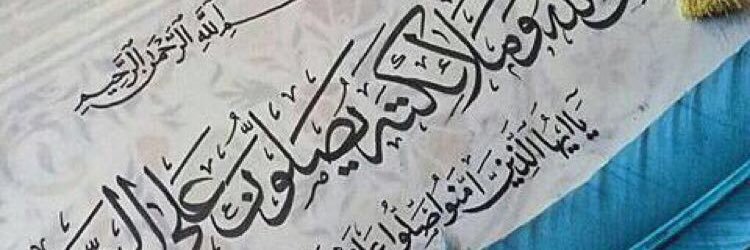 بسم الله الرحمن الرحيم
الله وملائكته يصلون على
يا ايها الذين آمنوا صلوا